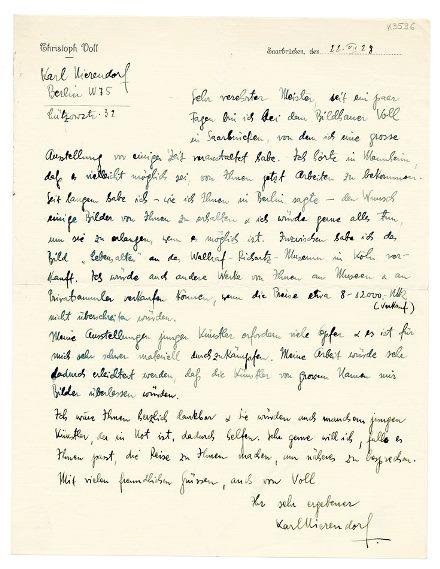 K3536
Christoph Voll
Saarbrücken, den 22. VI 28
Karl Nierendorf
Berlin W 35
Lützowstr. 32
Sehr verehrter Meister, seit ein paar
Tagen bin ich bei dem Bildhauer Voll
in Saarbrücken, von dem ich eine grosse
Ausstellung vor einiger Zeit veranstaltet habe. Ich hörte in Mannheim,
daß es vielleicht möglich sei, von Ihnen jetzt Arbeiten zu bekommen.
Seit langem habe ich – wie ich Ihnen in Berlin sagte – den Wunsch
einige Bilder von Ihnen zu erhalten & ich würde gerne alles tun,
um sie zu erlangen, wenn es möglich ist. Inzwischen habe ich das
Bild an das Wallraf-Richartz-Museum in Köln ver-
kauft. Ich würde auch andere Werke von Ihnen an Museen & an
Privatsammler verkaufen können, wenn die Preise etwa 8-12000 Mk
(Verkauf)
nicht überschreiten würden.
Meine Ausstellungen junger Künstler erfordern viele Opfer & es ist für
mich sehr schwer materiell durchzukämpfen. Meine Arbeit würde sehr
dadurch erleichtert werden, daß die Künstler von grossem Namen mir
Bilder überlassen würden.
Ich wäre Ihnen herzlich dankbar & Sie würden auch manchem jungen
Künstler, der in Not ist, dadurch helfen. Sehr gerne will ich, falls es
Ihnen passt, die Reise zu Ihnen machen, um näheres zu besprechen.
Mit vielen freundlichen Grüssen, auch von Voll
Ihr sehr ergebener
Karl Nierendorf.